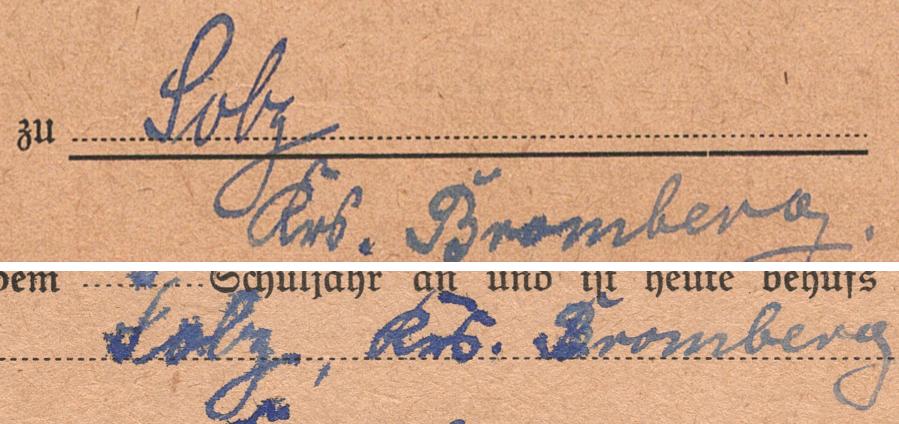 zu Solz
Krs. Bromberg.
dem Schuljahr an und ist heute behufs
Solz, Krs. Bromberg